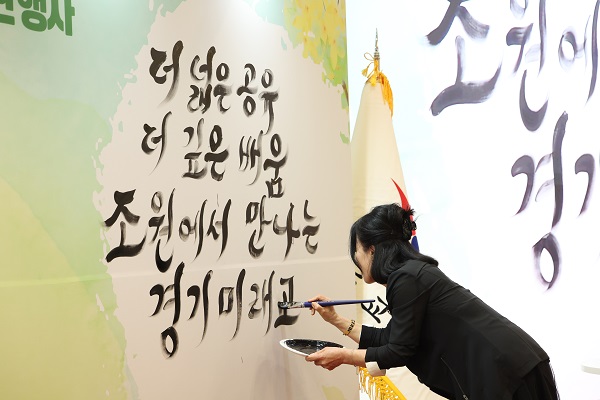 행사
더 넓은 공유
더 깊은 배움
조원에서 만나는
경기미래교
조원에
경기